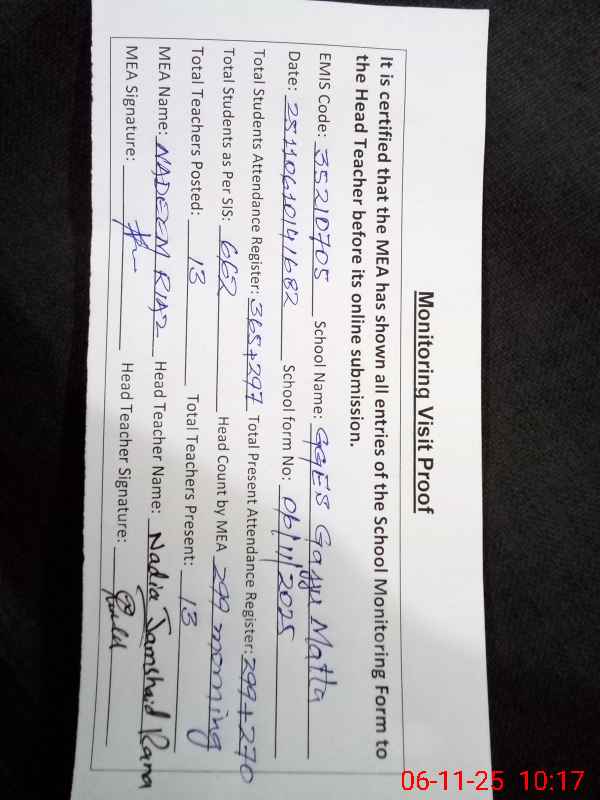 Monitoring Visit Proof
It is certified that the MEA has shown all entries of the School Monitoring Form to
the Head Teacher before its online submission.
EMIS Code: 35210705 School Name: GGES Gajju Matta
Date: 25110610141682 School form No: 06/11/2025
Total Students Attendance Register: 365+297 Total Present Attendance Register: 299+270
Total Students as Per SIS: 662 Head Count by MEA 299 morning
Total Teachers Posted: 13 Total Teachers Present: 13
MEA Name: NADEEM RIAZ Head Teacher Name: Nadia Jamshaid Rana
MEA Signature: Head Teacher Signature:
06-11-25 10:17